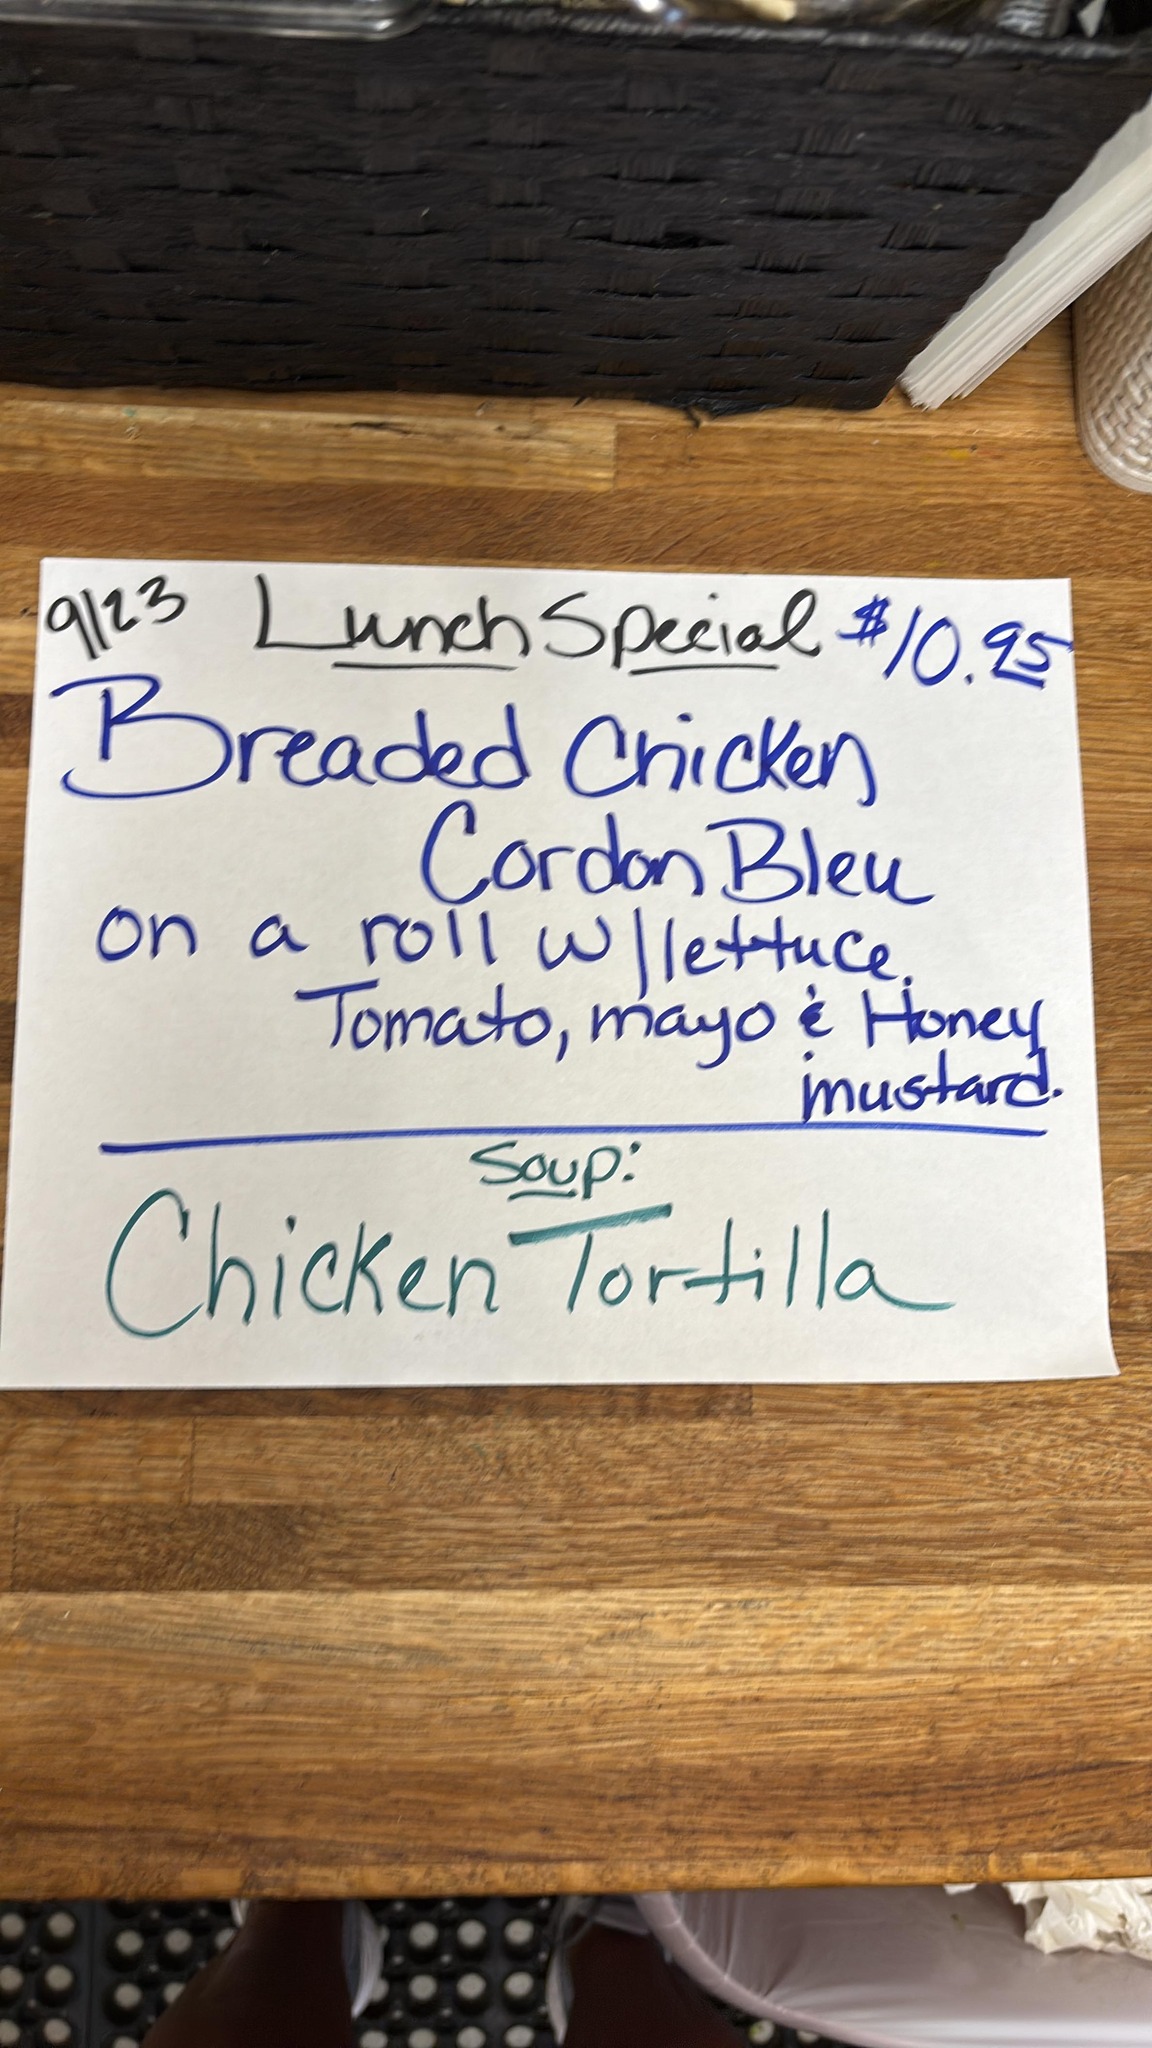 9/23 Lunch Special $10.95
Breaded Chicken
Cordon Bleu
on a roll w/lettuce.
Tomato, mayo & Honey
mustard.
Soup:
Chicken Tortilla